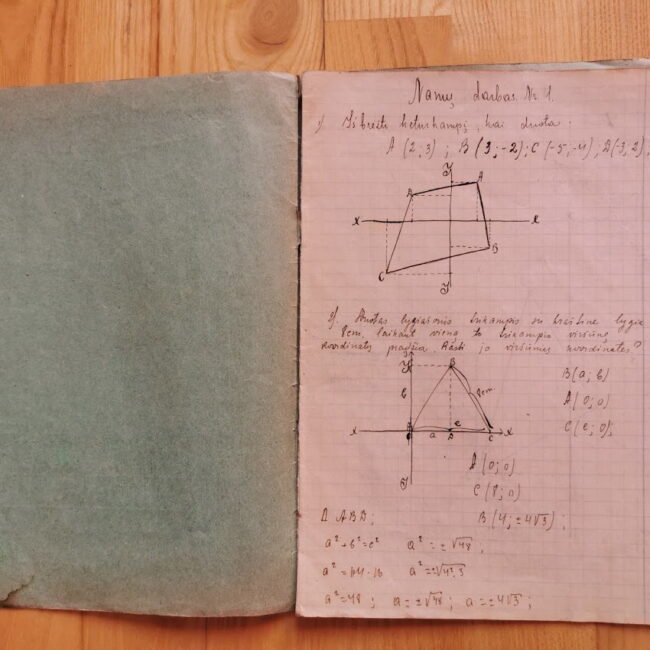 Namų darbas Nr 1.
1) Išbrėšti keturkampį, kai duota.
A (2; 3) ; B (3; -2); C (-5; -4); D(-3, 2)
Y
A A
X X
B
C
Y
2) Duotas lygiašonis trikampis su kraštine lygia
8cm, laikant vieną to trikampio viršūnę
koordinatų pradžia. Rasti jo viršūnių koordinates?
Y B
B(a; b)
b 8cm
A(0; 0)
c
C(c; 0);
X a D C X
Y
A(0; 0)
C(8; 0)
Δ ABD; B(4; ±4√3);
a² + b² = c² a² = ±√48;
a² = 64 - 16 a² = ±√4²·3
a² = 48; a = ±√48; a = ±4√3;